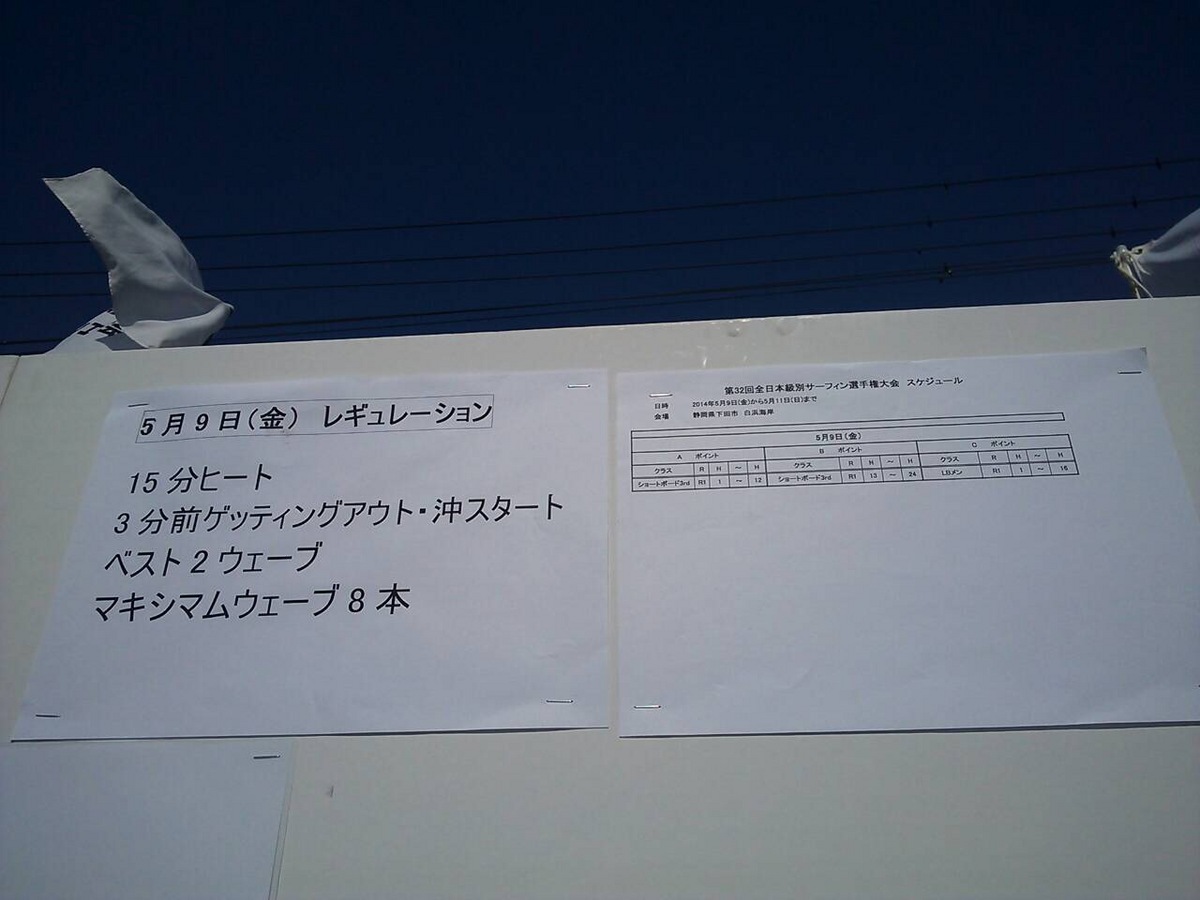 5月9日(金) レギュレーション
15分ヒート
3分前ゲッティングアウト・沖スタート
ベスト2ウェーブ
マキシマムウェーブ8本
第32回全日本級別サーフィン選手権大会 スケジュール
日時 2014年5月9日(金)から5月11日(日)まで
会場 静岡県下田市 白浜海岸
5月9日(金)
A ポイント B ポイント C ポイント
クラス R H ～ H クラス R H ～ H クラス R H ～ H
ショートボード3rd R1 1 ～ 12 ショートボード3rd R1 13 ～ 24 LBメン R1 1 ～ 16